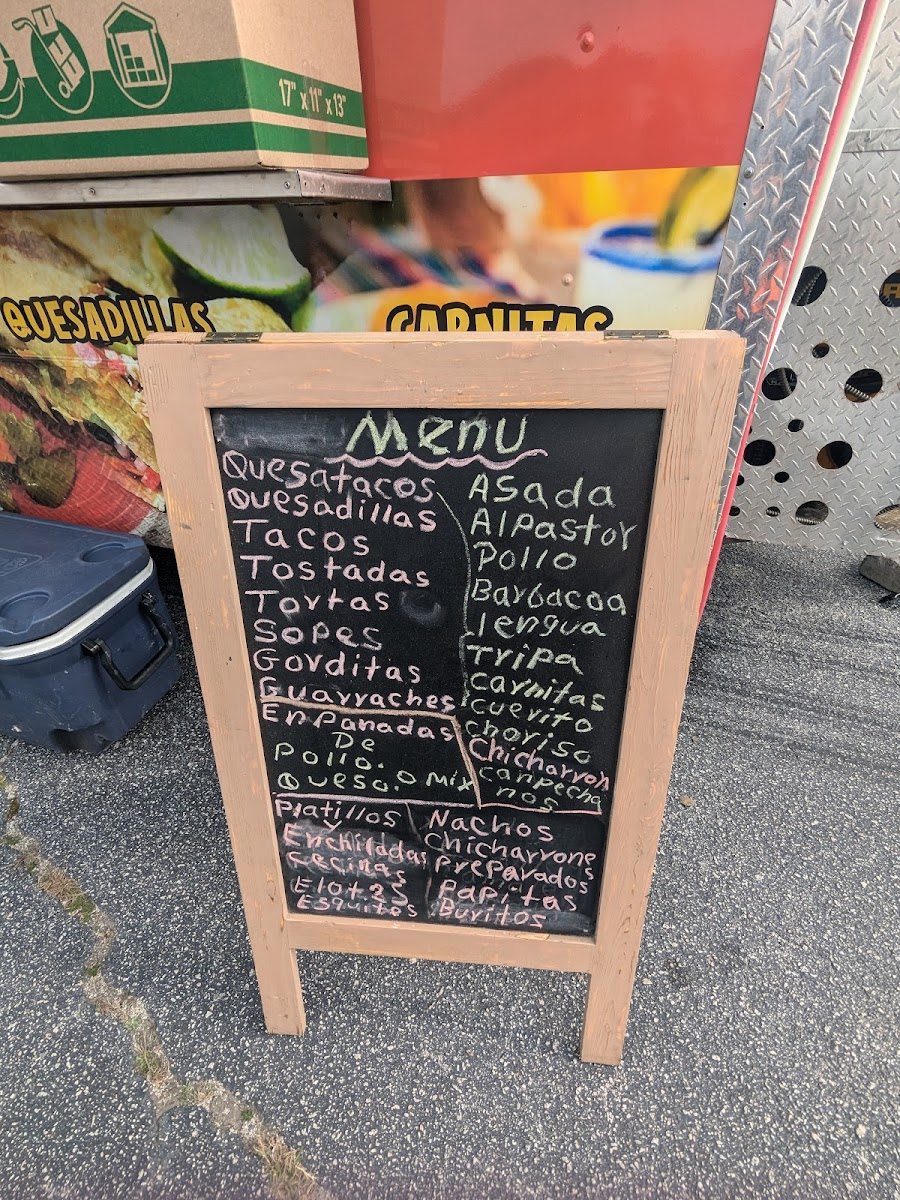 17" x 11" x 13"
QUESADILLAS
CARNITAS
Menu
Quesatacos
Quesadillas
Tacos
Tostadas
Tortas
Sopes
Gorditas
Guarraches
Asada
AlPastor
Pollo
Barbacoa
lengua
Tripa
carnitas
cuerito
choriso
Chicharron
canpecha
nos
EnPanadas
De
Pollo.
Queso. O Mix
Platillos
Enchiladas
Cecinas
Elotes
Esquitos
Nachos
Chicharrones
PrePArados
PaPitas
Buritos